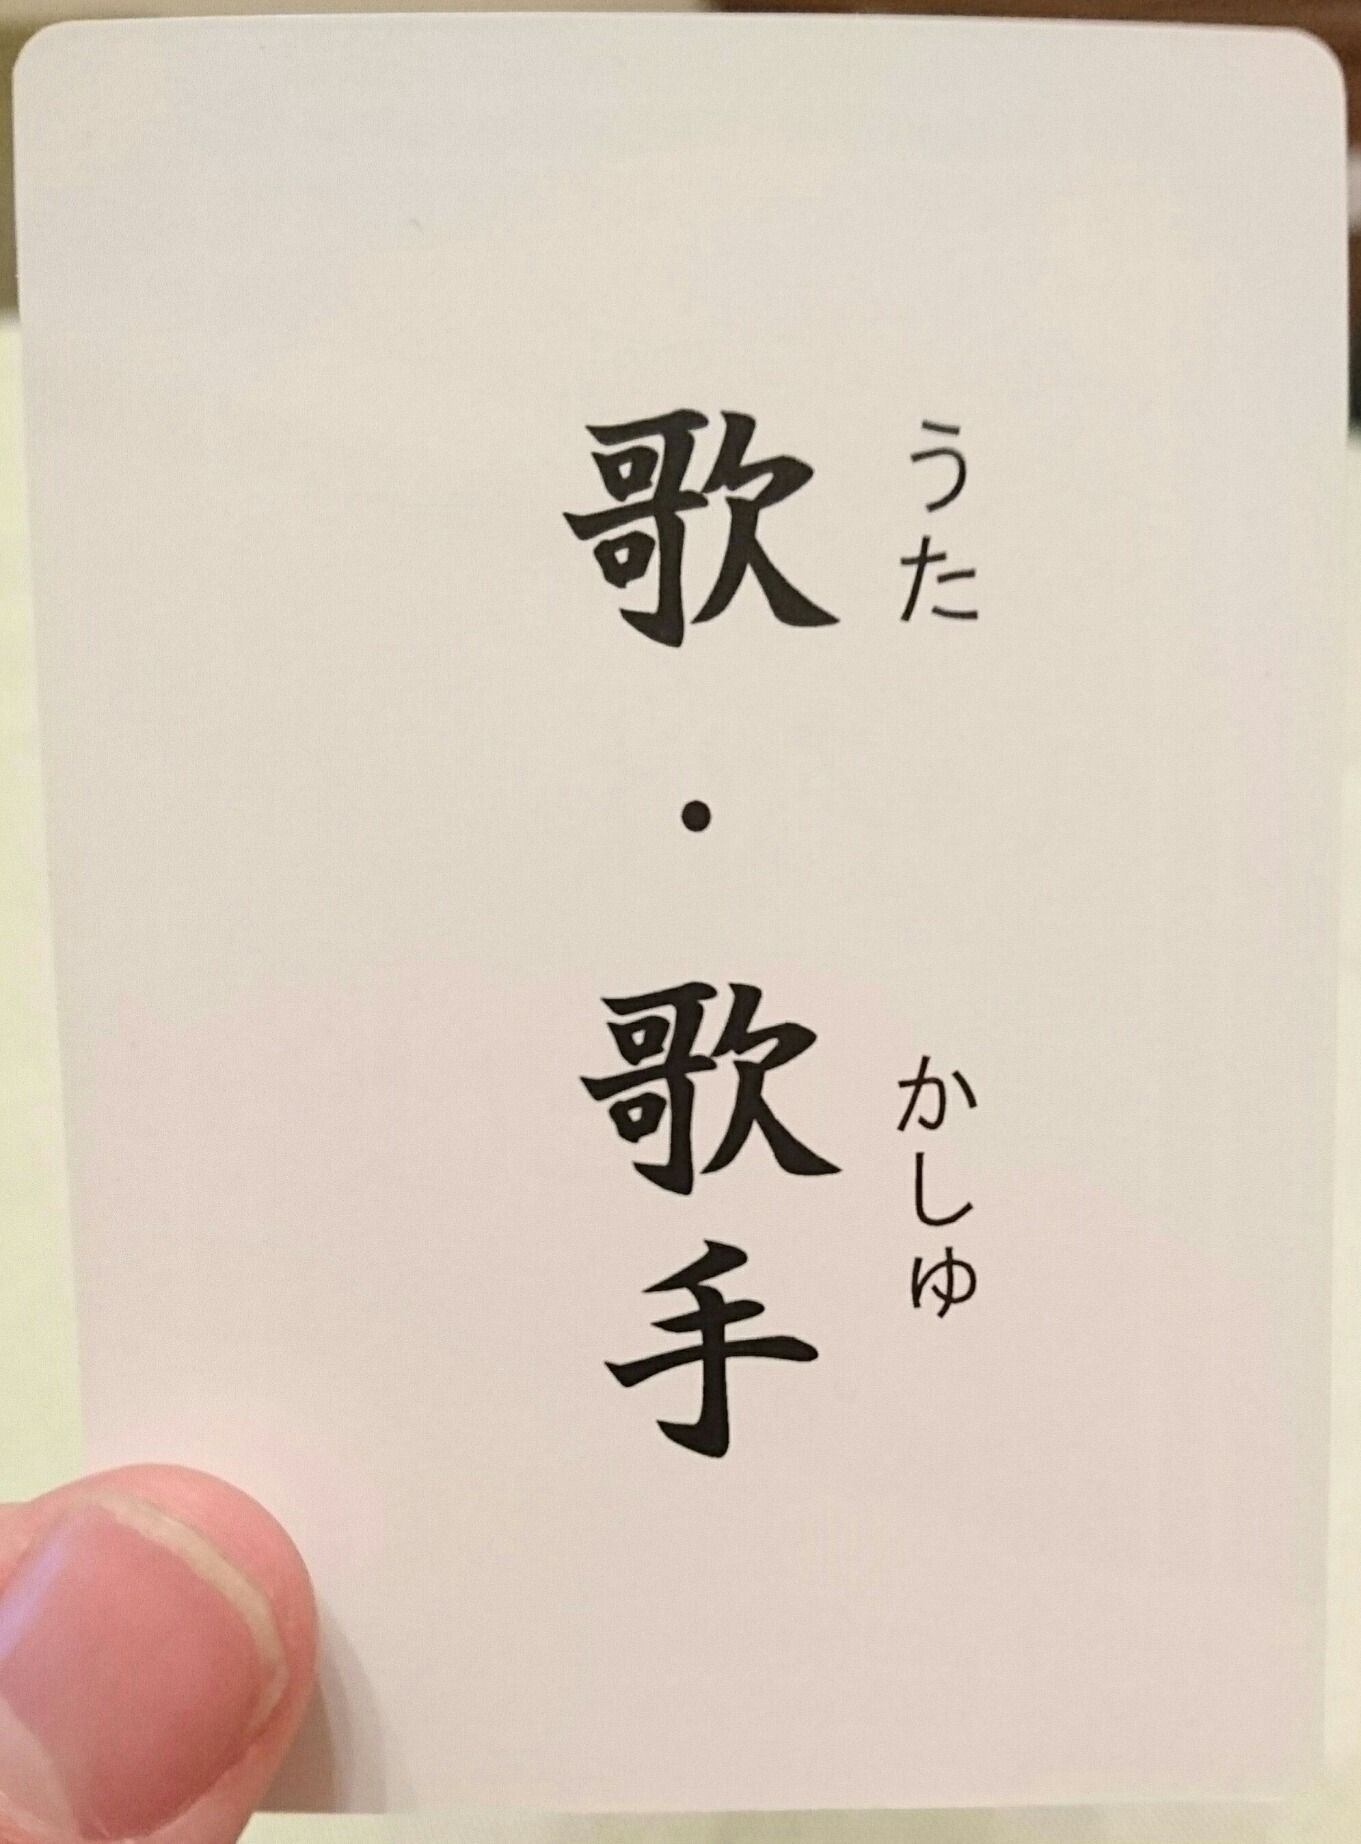 歌・歌手
うた
かしゅ